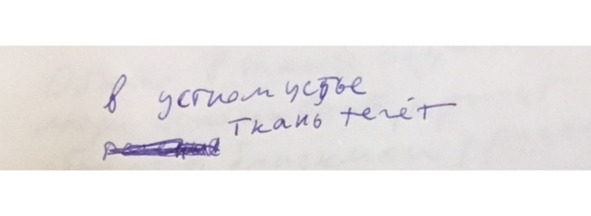 в устном устье
ткань течёт